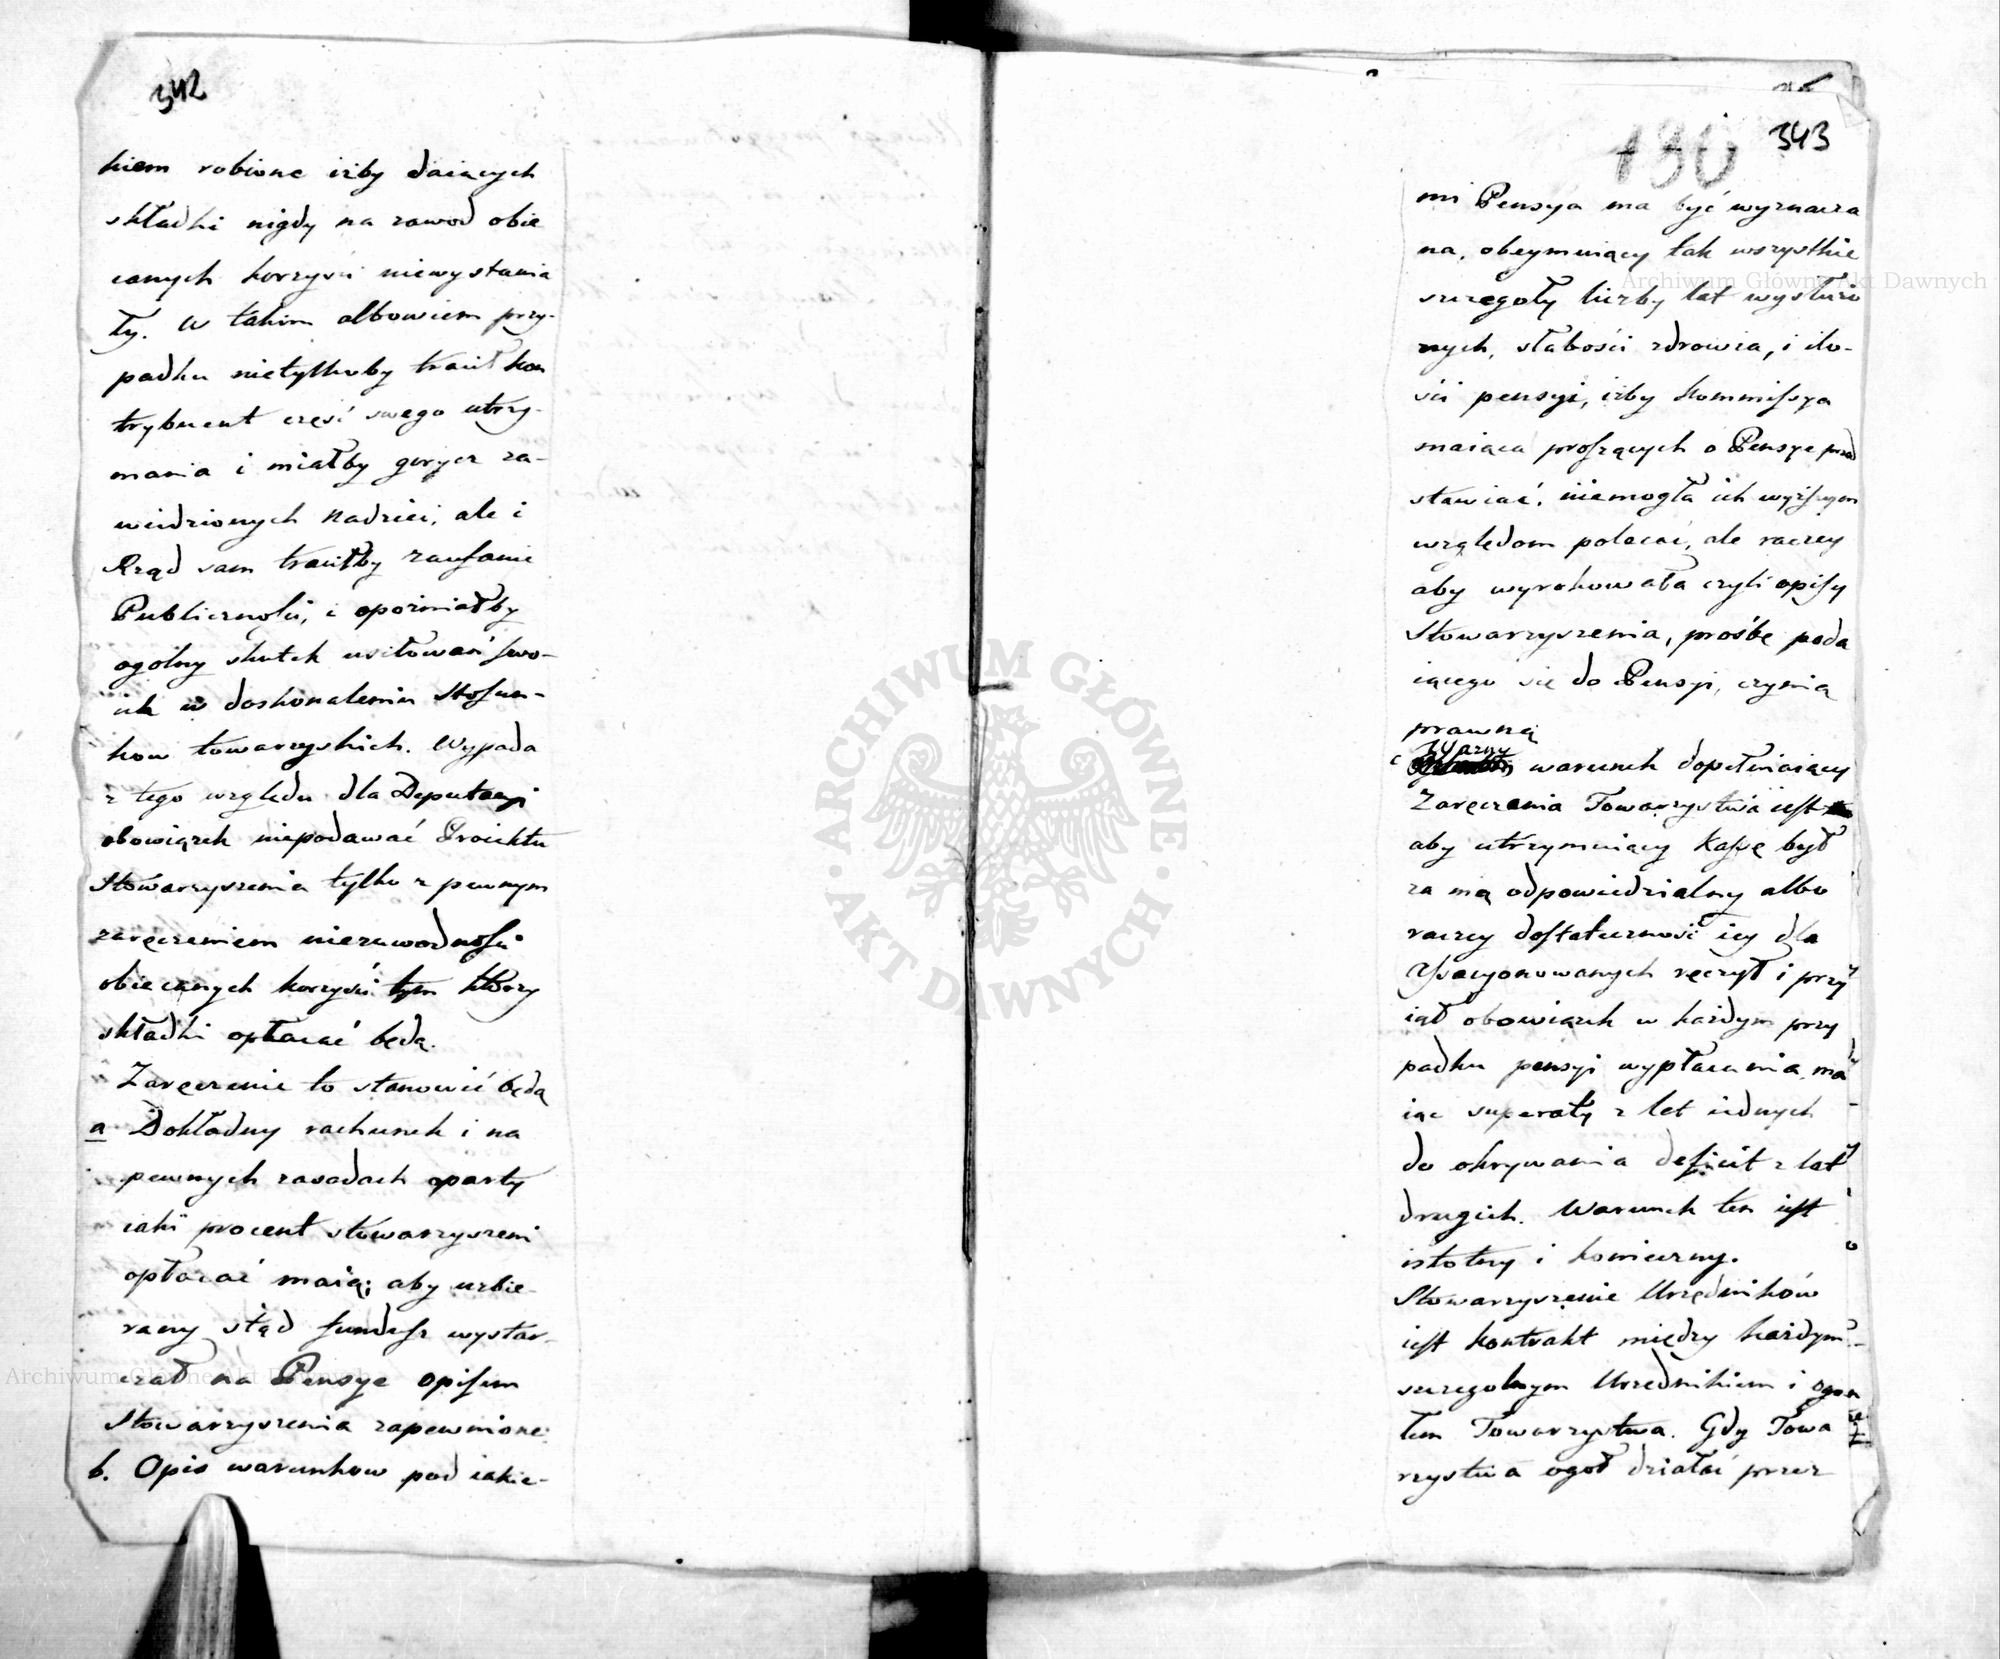 342
kiem robione iżby daiących
składki nigdy na zawod obie
canych korzyści niewystawia
ły. W takim albowiem przy-
padku nietylkoby tracił kon
trybuent część swego utrzy-
mania i miałby gorycz za-
wiedzionych nadziei, ale i
Rząd sam traciłby zaufanie
Publicznośći, i opoźniałby
ogólny skutek usiłowań swo-
ich w doskonaleniu Stosun-
kow towarzyskich. Wypada
z tego względu dla Deputacyi
obowiązek niepodawać Proiektu
Stowarzyszenia tylko z pewnym
zaręczeniem niezawodnośći
obiecanych korzyści tym którzy
składki opłacać będą.
Zaręczenie to stanowić będą
a Dokładny rachunek i na
pewnych zasadach oparty
iaki procent stowarzyszeni
opłacać maią; aby uzbie-
rany stąd fundusz wystar-
czał na Pensye opisem
Stowarzyszenia zapewnione.
b. Opis warunkow pod iakie-
343
190
mi Pensya ma być wyznacza
na, obeymuiący tak wszystkie
szczegoły liczby lat wysłużo
nych, słabości zdrowia, i ilo-
ści pensyi, iżby Kommissya
maiąca proszących o Pensye przed
stawiać, niemogła ich wyższym
względom polecać, ale raczey
aby wyrokowała czyli opisy
Stowarzyszenia, prośbę poda
iącego się do Pensyi, czynią
prawną
c Ważny warunek dopełniaiący
Zaręczenia Towarzystwa iest
aby utrzymuiący Kassę był
za nią odpowiedzialny albo
raczey dostateczność iey dla
Pensyonowanych ręczył i przy
iął obowiązek w każdym przy
padku pensyi wypłacania, ma
iąc superaty z lat iednych
do okrywania deficit z lat
drugich. Warunek ten iest
istotny i konieczny.
Stowarzyszenie Urzędników
iest kontrakt między każdym
szczegolnym Urzednikiem i ogo
łem Towarzystwa. Gdy Towa
rzystwa ogoł działać przez
Archiwum Główne Akt Dawnych
ARCHIWUM GŁÓWNE AKT DAWNYCH
Archiwum Główne Akt Dawnych